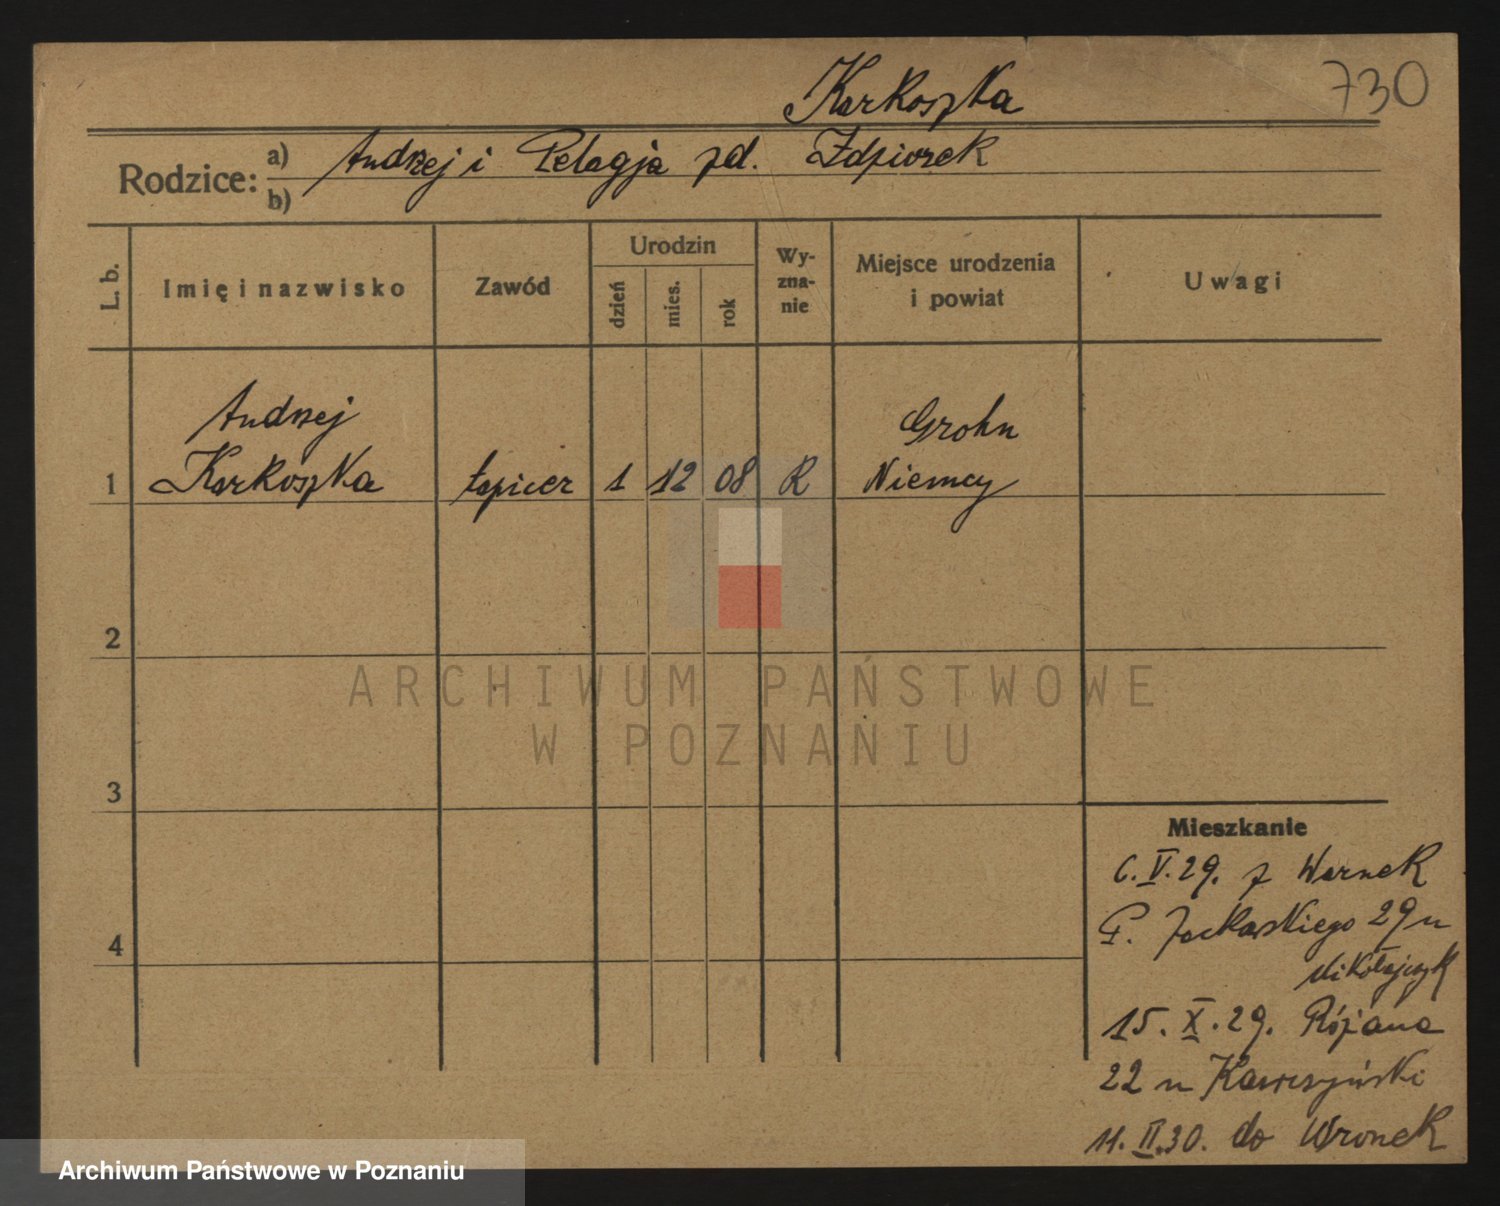 730
Karkoszka
Rodzice: a) Andrzej i Pelagja zd. Zdziorek
b)
L. b.
Imię i nazwisko
Zawód
Urodzin
dzień
mies.
rok
Wy-
zna-
nie
Miejsce urodzenia
i powiat
Uwagi
Andrzej
Karkoszka
1
tapicer
1
12
08
R
Grohn
Niemcy
2
3
4
Mieszkanie
6.V.29. z Wronek
P. Jackowskiego 29 u
Mikołajczyk
15.X.29. Różana
22 u Kawczyński
11.II.30. do Wronek
ARCHIWUM PAŃSTWOWE
W POZNANIU
Archiwum Państwowe w Poznaniu